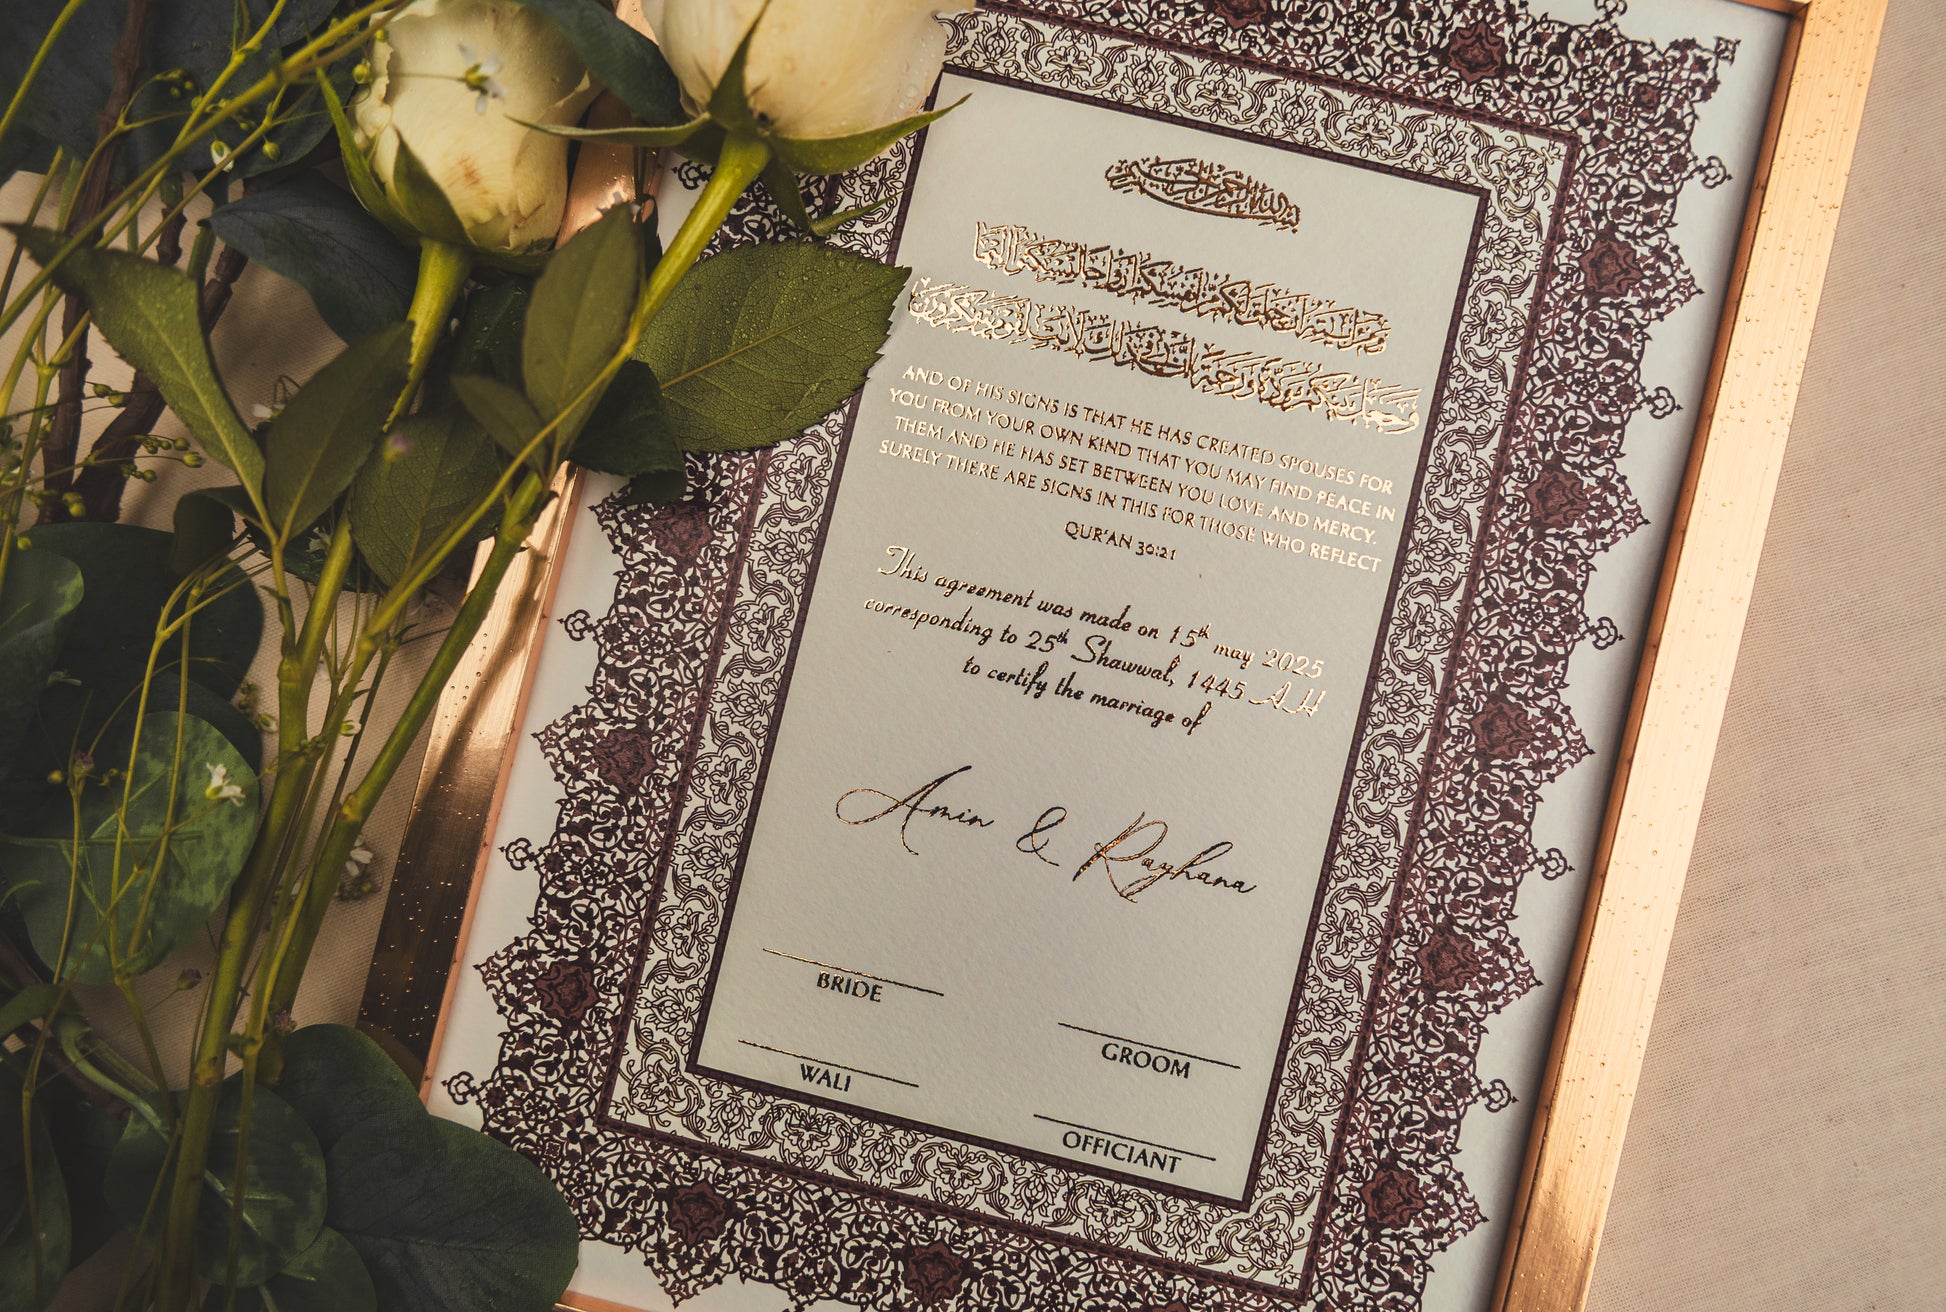 بسم الله الرحمن الرحيم
ومن آياته أن خلق لكم من أنفسكم أزواجا لتسكنوا إليها
وجعل بينكم مودة ورحمة إن في ذلك لآيات لقوم يتفكرون
AND OF HIS SIGNS IS THAT HE HAS CREATED SPOUSES FOR
YOU FROM YOUR OWN KIND THAT YOU MAY FIND PEACE IN
THEM AND HE HAS SET BETWEEN YOU LOVE AND MERCY.
SURELY THERE ARE SIGNS IN THIS FOR THOSE WHO REFLECT
QUR'AN 30:21
This agreement was made on 15th may 2025
corresponding to 25th Shawwal, 1445 AH
to certify the marriage of
Amin & Rayhana
BRIDE
GROOM
WALI
OFFICIANT